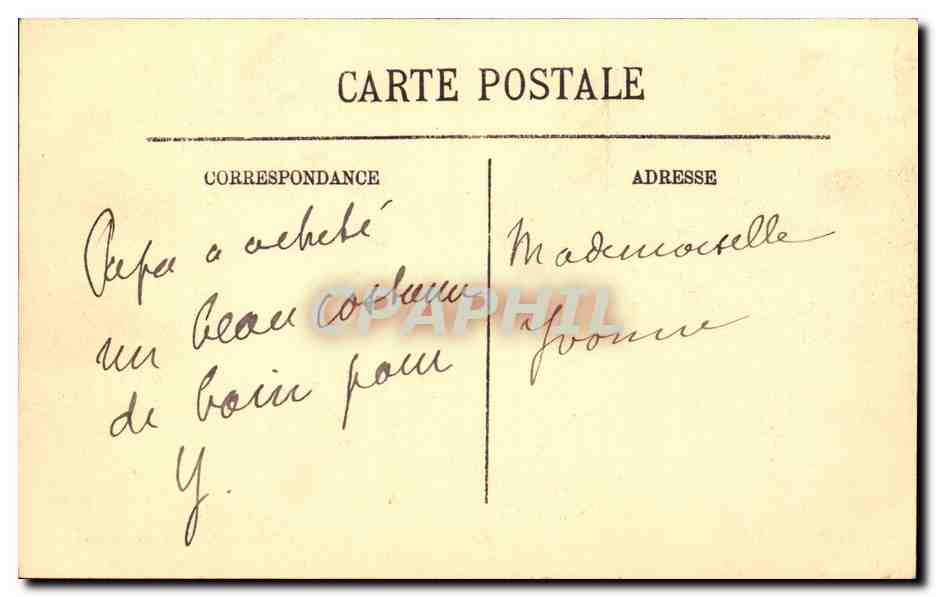 CARTE POSTALE
CORRESPONDANCE
ADRESSE
Papa a acheté
un beau costume
de bain pour
Y.
Mademoiselle
Yvonne
CPAPHIL